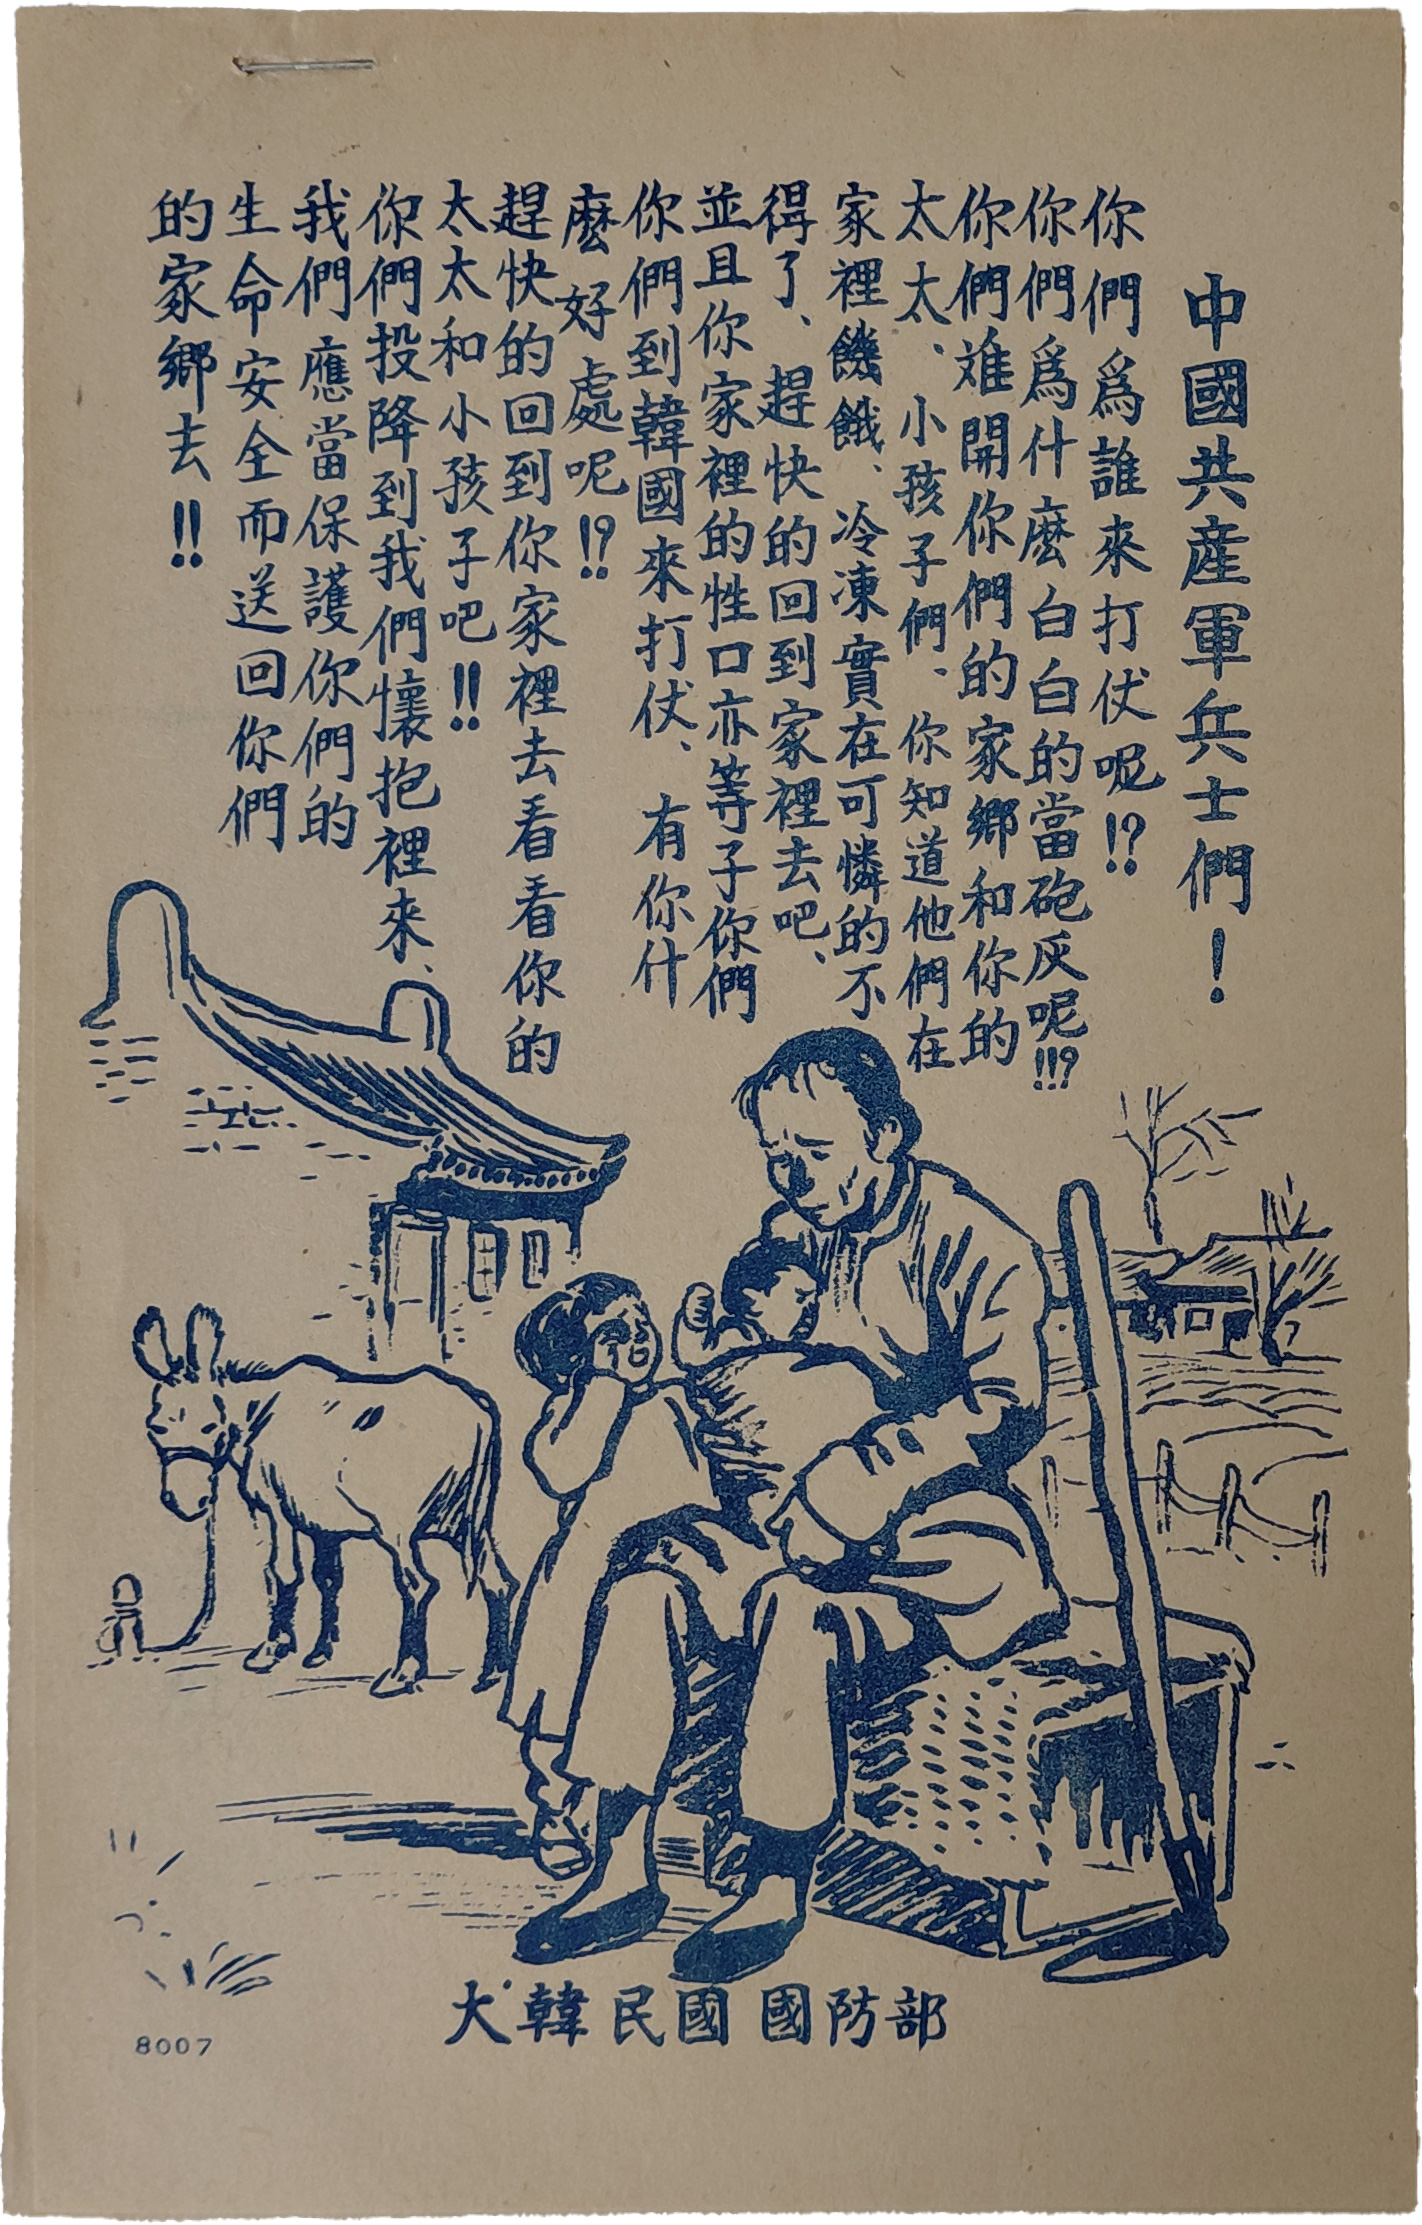 中國共産軍兵士們！
你們爲誰來打仗呢!?
你們爲什麽白白的當砲灰呢!!?
你們难開你們的家鄉和你的
太太、小孩子們、你知道他們在
家裡饑餓、冷凍實在可憐的不
得了、趕快的回到家裡去吧、
並且你家裡的牲口亦等子你們
你們到韓國來打仗、有你什
麽好處呢!?
趕快的回到你家裡去看看你的
太太和小孩子吧!!
你們投降到我們懷抱裡來、
我們應當保護你們的
生命安全而送回你們
的家鄉去!!
大韓民國國防部
8007